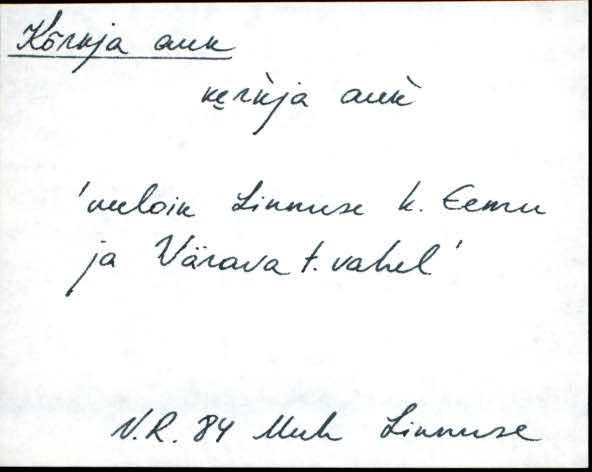 Kõrkja auk
kę̀rk̀ja auk̀
'veeloik Linnuse k. Eemu
ja Värava t. vahel'
V.R. 84 Muh Linnuse